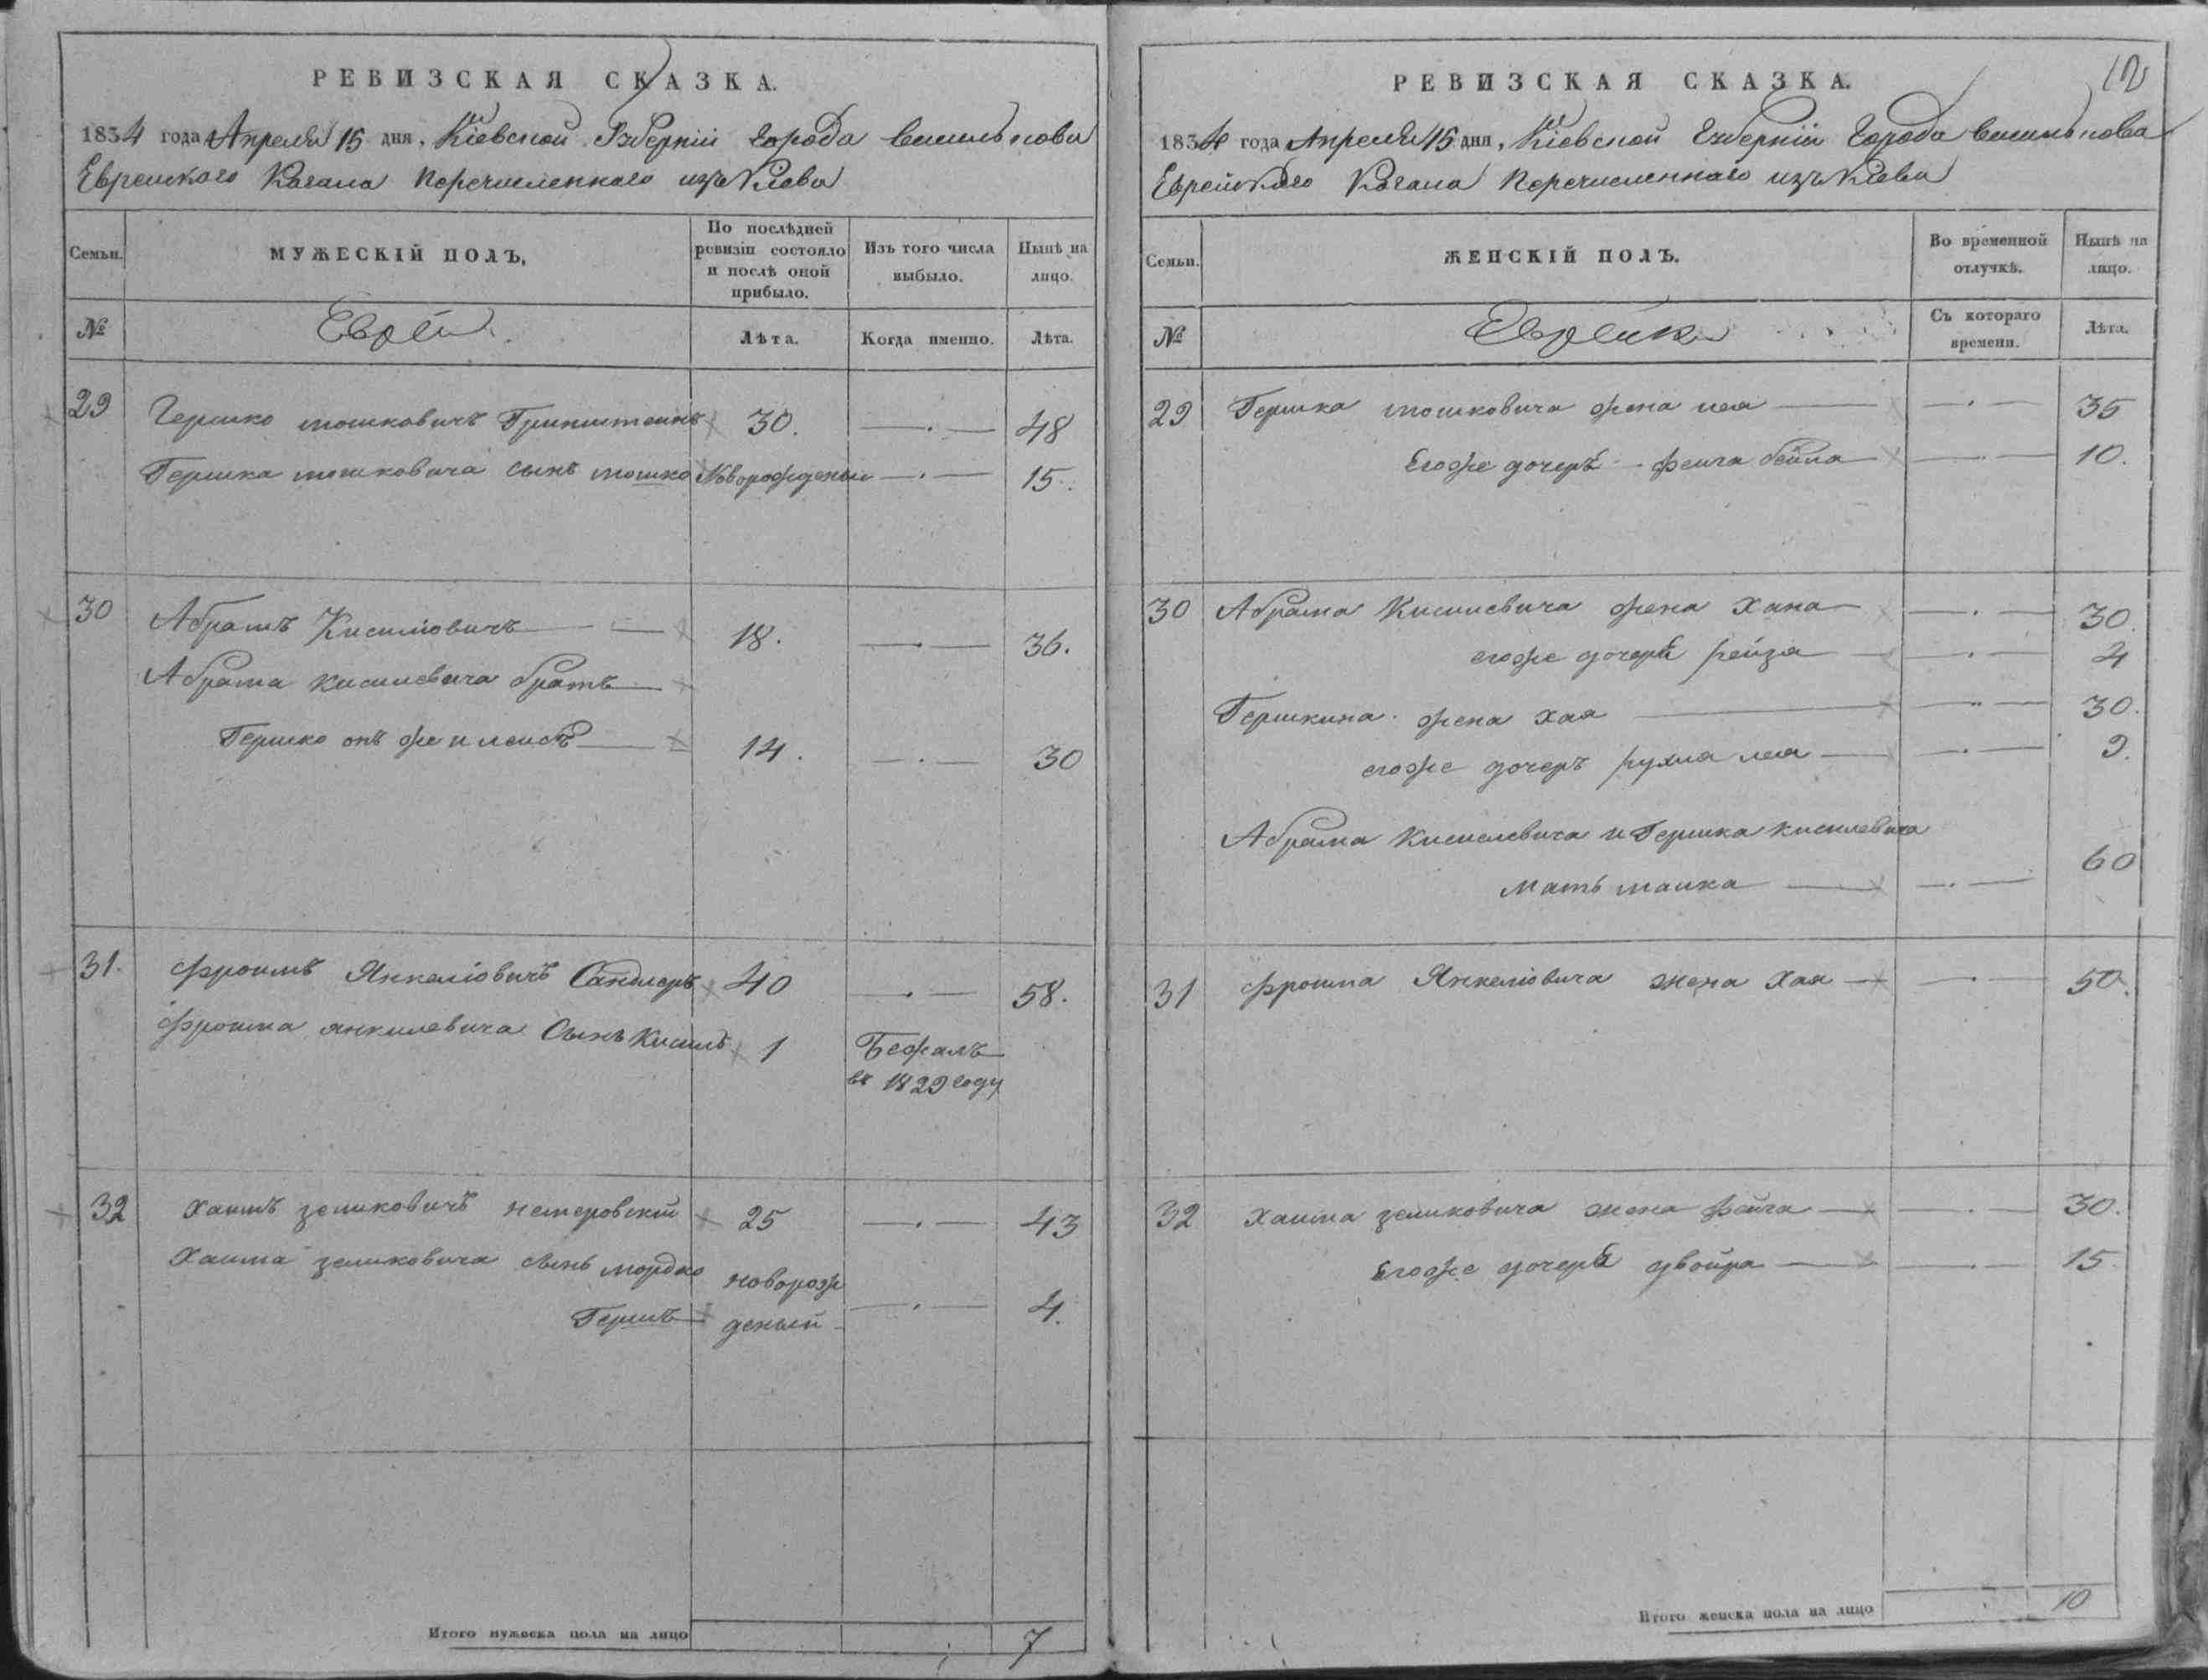 РЕВИЗСКАЯ СКАЗКА.
1834 года Апреля 15 дня, Кіевской Губерніи города Василькова
Еврейского Кагала перечисленного изъ Кіева
Семьи.
МУЖЕСКІЙ ПОЛЪ,
По послѣдней ревизіи состояло и послѣ оной прибыло.
Изъ того числа выбыло.
Нынѣ на лицо.
№
Евреи
Лѣта.
Когда именно.
Лѣта.
29 Гершко мошковичъ Гринштеинъ 30. 48
Гершка мошковича сынъ мошко Новорожденый 15.
30 Абрамъ Кисиліовичъ 18. 36.
Абрама кисилевича братъ
Гершко онъ же и 14. 30
31. Фроимъ Янкеліовичъ Сандлеръ 40 58.
Фроима янкилевича Сынъ Кисиль 1 Бежалъ
въ 1829 году
32 Хаимъ зеликовичъ нестеровскій 25 43
Хаима зелковича сынъ мордко новорож
Гершъ деный 4.
Итого мужеска пола на лицо 7
12
РЕВИЗСКАЯ СКАЗКА.
1834 года Апреля 15 дня, Кіевской Губерніи Города Василькова
Еврейского Кагала перечисленного изъ Кіева
Семьи.
ЖЕНСКІЙ ПОЛЪ.
Во временной отлучкѣ.
Нынѣ на лицо.
№
Еврейки
Съ котораго времени.
Лѣта.
29 Гершка мошковича жена лея 35
Егоже дочерь феига бейла 10.
30 Абрама Кисилевича жена Хана 30.
егоже дочерь рейза 4
Гершкина жена хая 30.
егоже дочеръ рухля лея 9.
Абрама Кисилевича и Гершка кисилевича
мать 60
31 Фроима Янкеліовича жена Хая 50.
32 Хаима зеликовича жена фейга 30.
Егоже дочерь двойра 15.
Итого женска пола на лицо 10